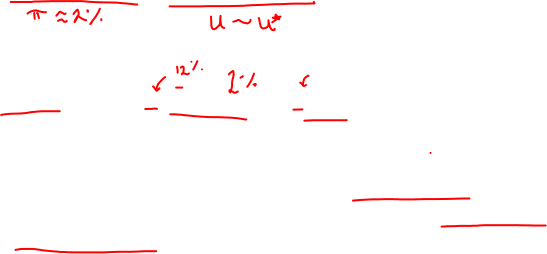 π ≈ 2% u ~ u*
12% 2%